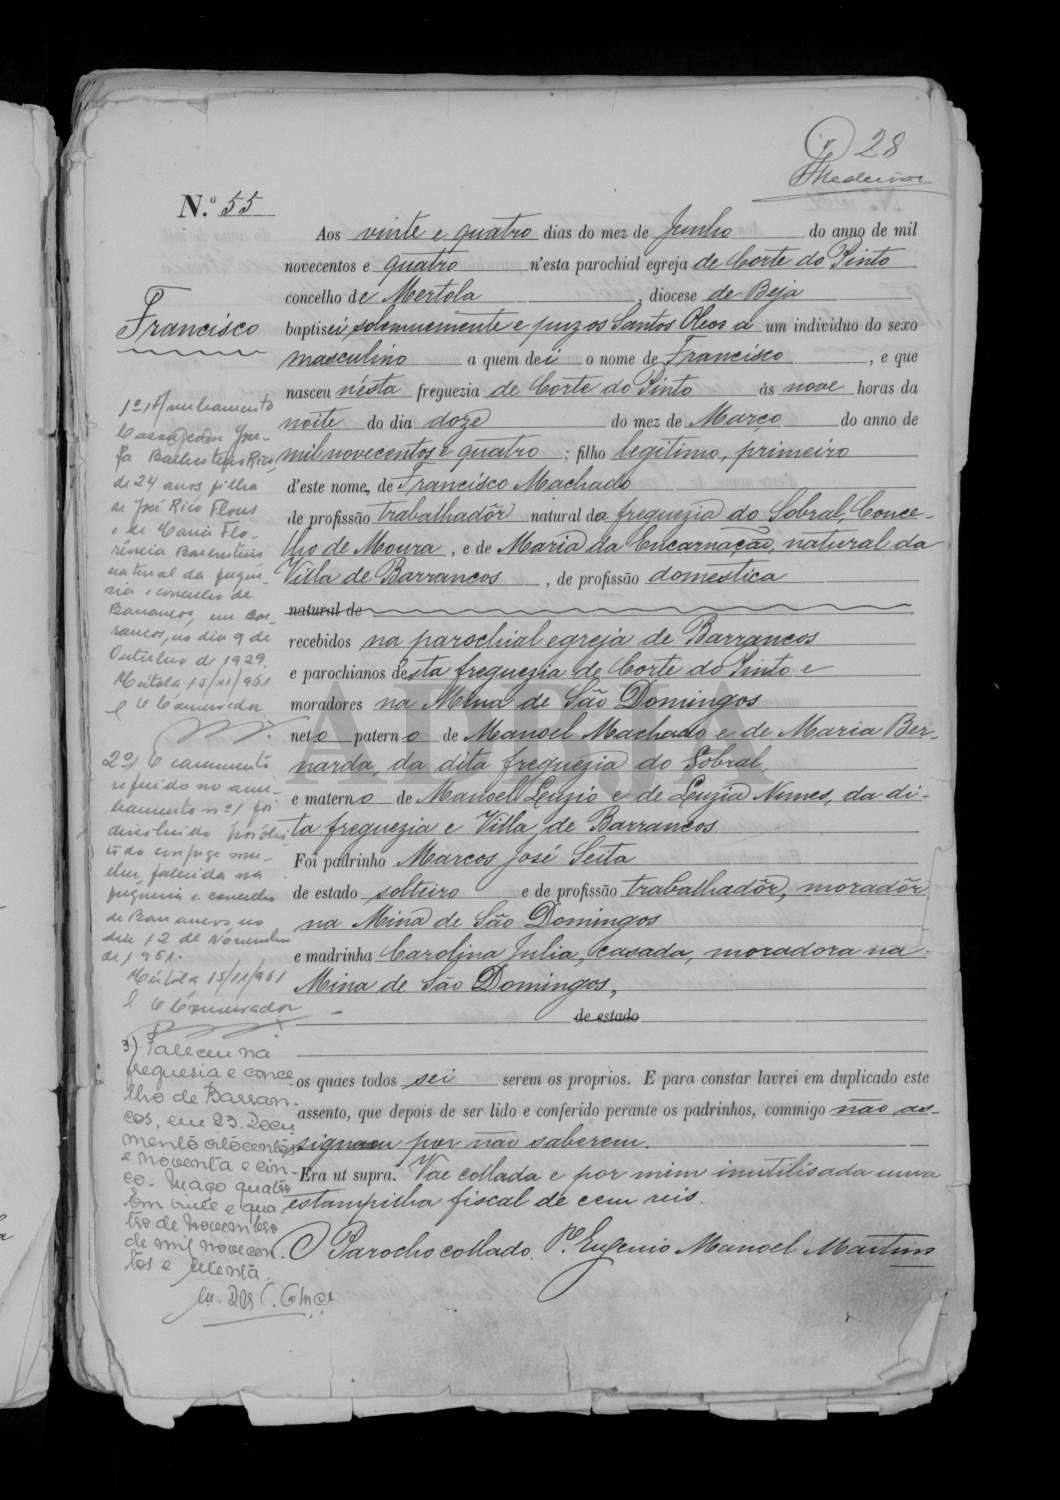 28
Medeiros
N.º 55
Aos vinte e quatro dias do mez de Junho do anno de mil
novecentos e quatro n'esta parochial egreja de Corte do Pinto
concelho de Mertola, diocese de Beja
Francisco
baptisei solemnemente e puz os Santos Oleos a um individuo do sexo
masculino a quem dei o nome de Francisco, e que
nasceu nésta freguezia de Corte do Pinto ás nove horas da
noite do dia doze do mez de Março do anno de
mil novecentos e quatro; filho legitimo, primeiro
d'este nome, de Francisco Machado
de profissão trabalhadôr natural da freguezia do Sobral, Conce-
lho de Moura, e de Maria da Encarnação, natural da
Villa de Barrancos, de profissão domestica
natural de
recebidos na parochial egreja de Barrancos
e parochianos désta freguezia de Corte do Pinto e
moradores na Mina de São Domingos
neto paterno de Manoel Machado e de Maria Ber-
narda, da dita freguezia do Sobral
e materno de Manoel Luzio e de Luzia Nunes, da di-
ta freguezia e Villa, de Barrancos
Foi padrinho Marcos José Seita
de estado solteiro e de profissão trabalhadôr, moradôr
na Mina de São Domingos
e madrinha Carolina Julia, casada, moradora na
Mina de São Domingos,
de estado
os quaes todos sei serem os proprios. E para constar lavrei em duplicado este
assento, que depois de ser lido e conferido perante os padrinhos, commigo não as-
signam por não saberem.
Era ut supra. Vae collada e por mim inutilisada uma
estampilha fiscal de cem reis.
O Parocho collado. P.e Eugenio Manoel Martins
1º Averbamento
Casou com Jose-
fa Rico
de 24 anos filha
de José Rico Flores
e de Maria Flo-
rencia
natural da fregue-
sia e concelho de
Barrancos, em Bar-
rancos, no dia 9 de
Outubro de 1929.
Mértola 15/11/961
O Conservador
2º) O casamento
referido no aver-
bamento nº 1 foi
dissolvido por óbi-
to do conjuge mu-
lher, falecida na
freguesia e concelho
de Barrancos, no
dia 12 de Novembro
de 1961.
Mértola 15/11/961
O Conservador
3) Faleceu na
freguesia e conce-
lho de Barran-
cos, em 23. Docu
mento oitocentos
e noventa e cin-
co. Maço quatro
Em vinte e qua
tro de novembro
de mil novecen-
tos e
ADBJA